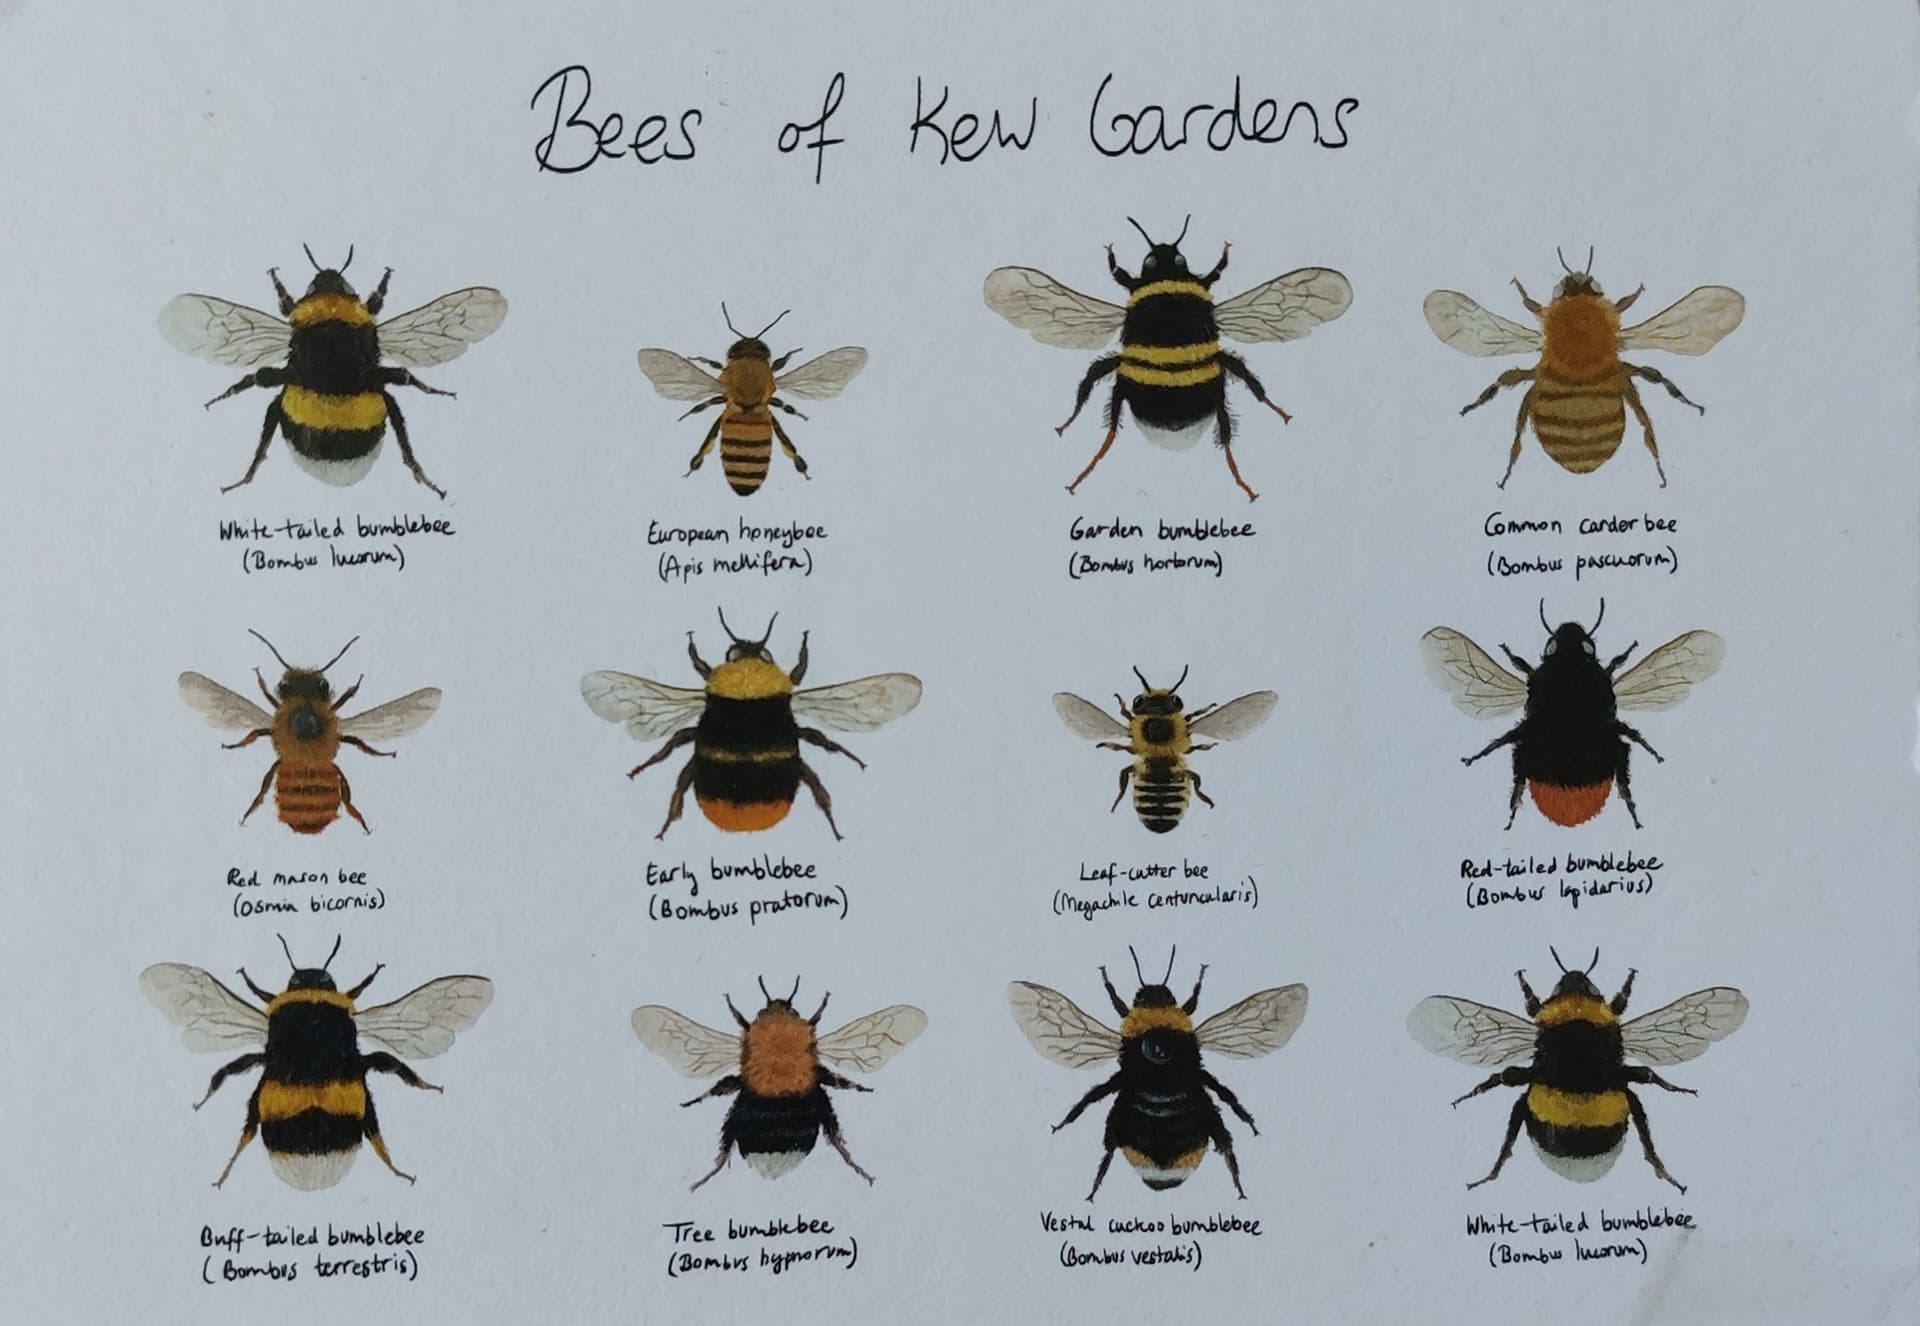 Bees of Kew Gardens
White-tailed bumblebee
(Bombus lucorum)
European honeybee
(Apis mellifera)
Garden bumblebee
(Bombus hortorum)
Common carder bee
(Bombus pascuorum)
Red mason bee
(Osmia bicornis)
Early bumblebee
(Bombus pratorum)
Leaf-cutter bee
(Megachile centuncularis)
Red-tailed bumblebee
(Bombus lapidarius)
Buff-tailed bumblebee
(Bombus terrestris)
Tree bumblebee
(Bombus hypnorum)
Vestal cuckoo bumblebee
(Bombus vestalis)
White-tailed bumblebee
(Bombus lucorum)